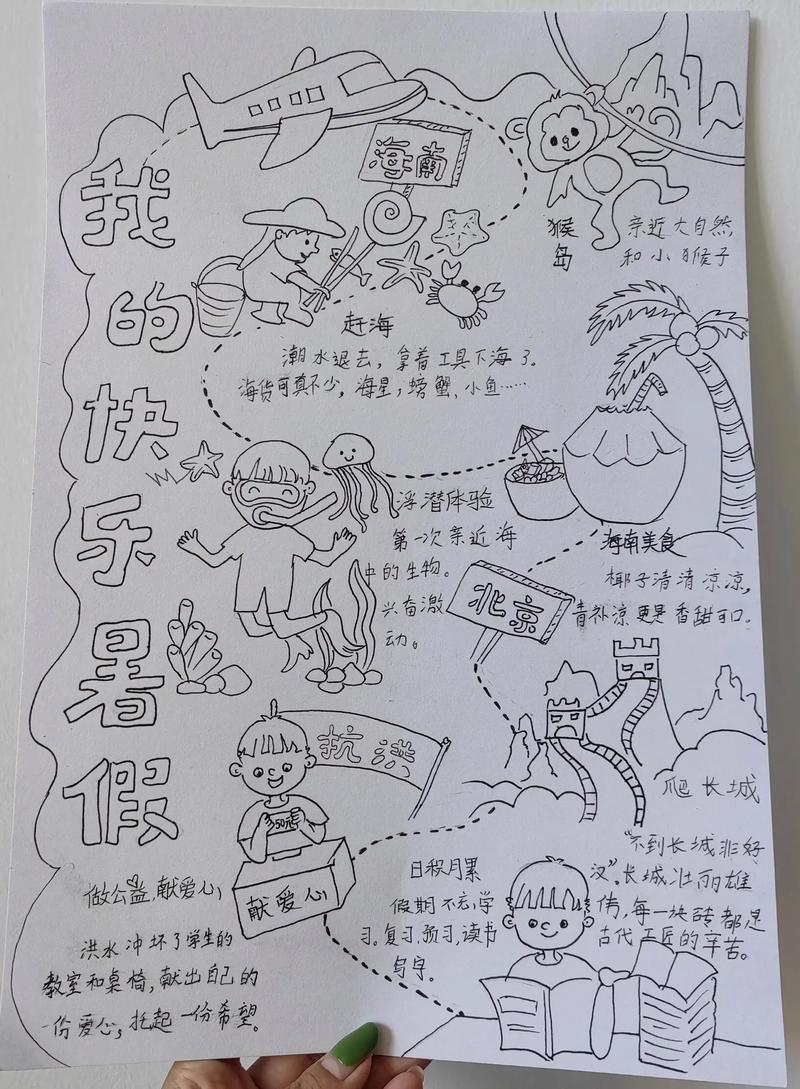 我的快乐暑假
海南
猴岛
亲近大自然
和小猴子
赶海
潮水退去，拿着工具下海了。
海货可真不少，海星，螃蟹、小鱼……
浮潜体验
第一次亲近海
中的生物。
兴奋激
动。
海南美食
椰子清清凉凉，
清补凉更是香甜可口。
北京
爬长城
“不到长城非好
汉”。长城壮丽雄
伟，每一块砖都是
古代工匠的辛苦。
抗洪
50元
献爱心
做公益，献爱心
洪水冲坏了学生的
教室和桌椅，献出自己的
一份爱心，托起一份希望。
日积月累
假期不忘学
习。复习，预习，读书
写字。